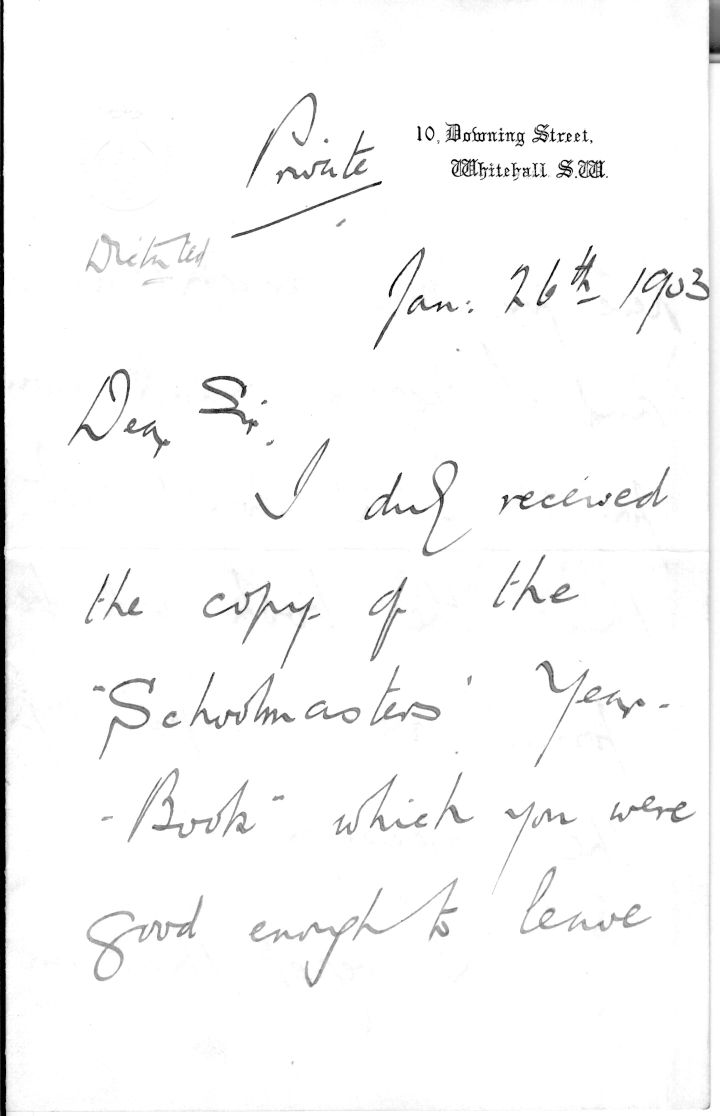 Private
10, Downing Street,
Whitehall. S.W.
Dictated
Jan: 26th 1903
Dear Sir,
I duly received
the copy of the
"Schoolmasters' Year-
-Book" which you were
good enough to leave